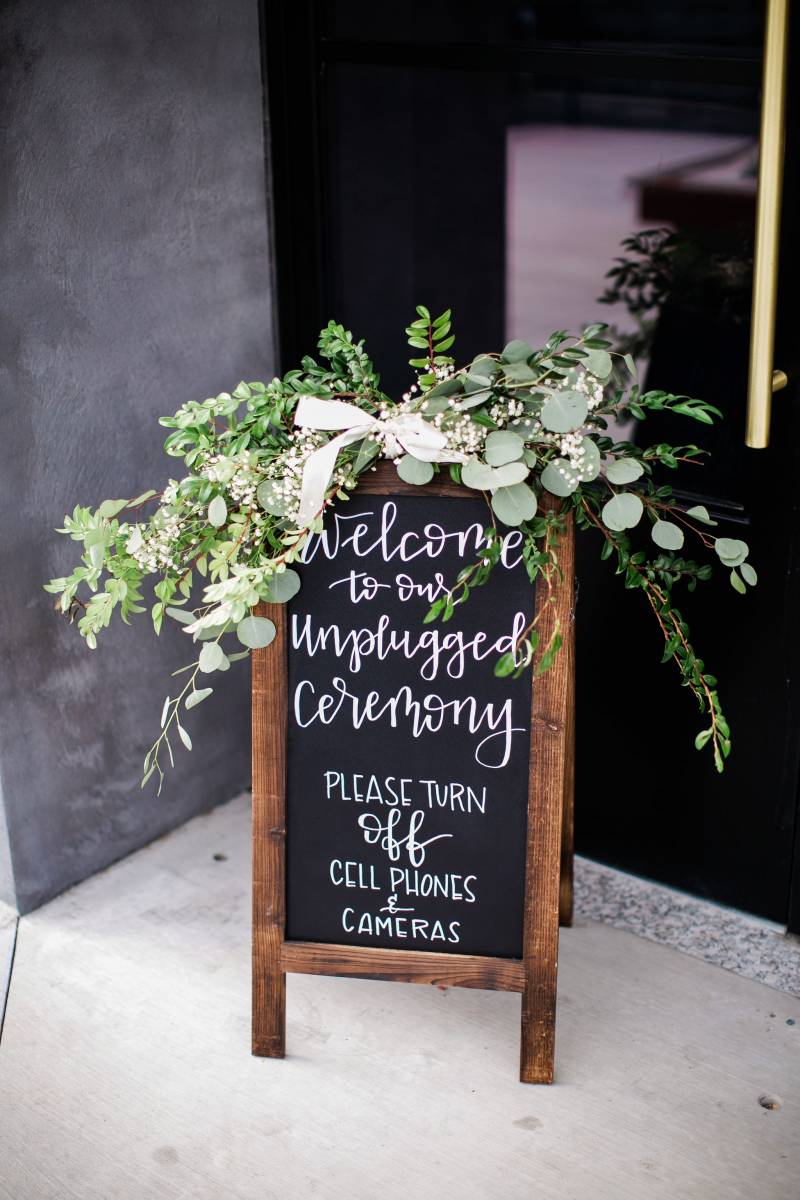 Welcome
to our
Unplugged
Ceremony
PLEASE TURN
off
CELL PHONES
&
CAMERAS